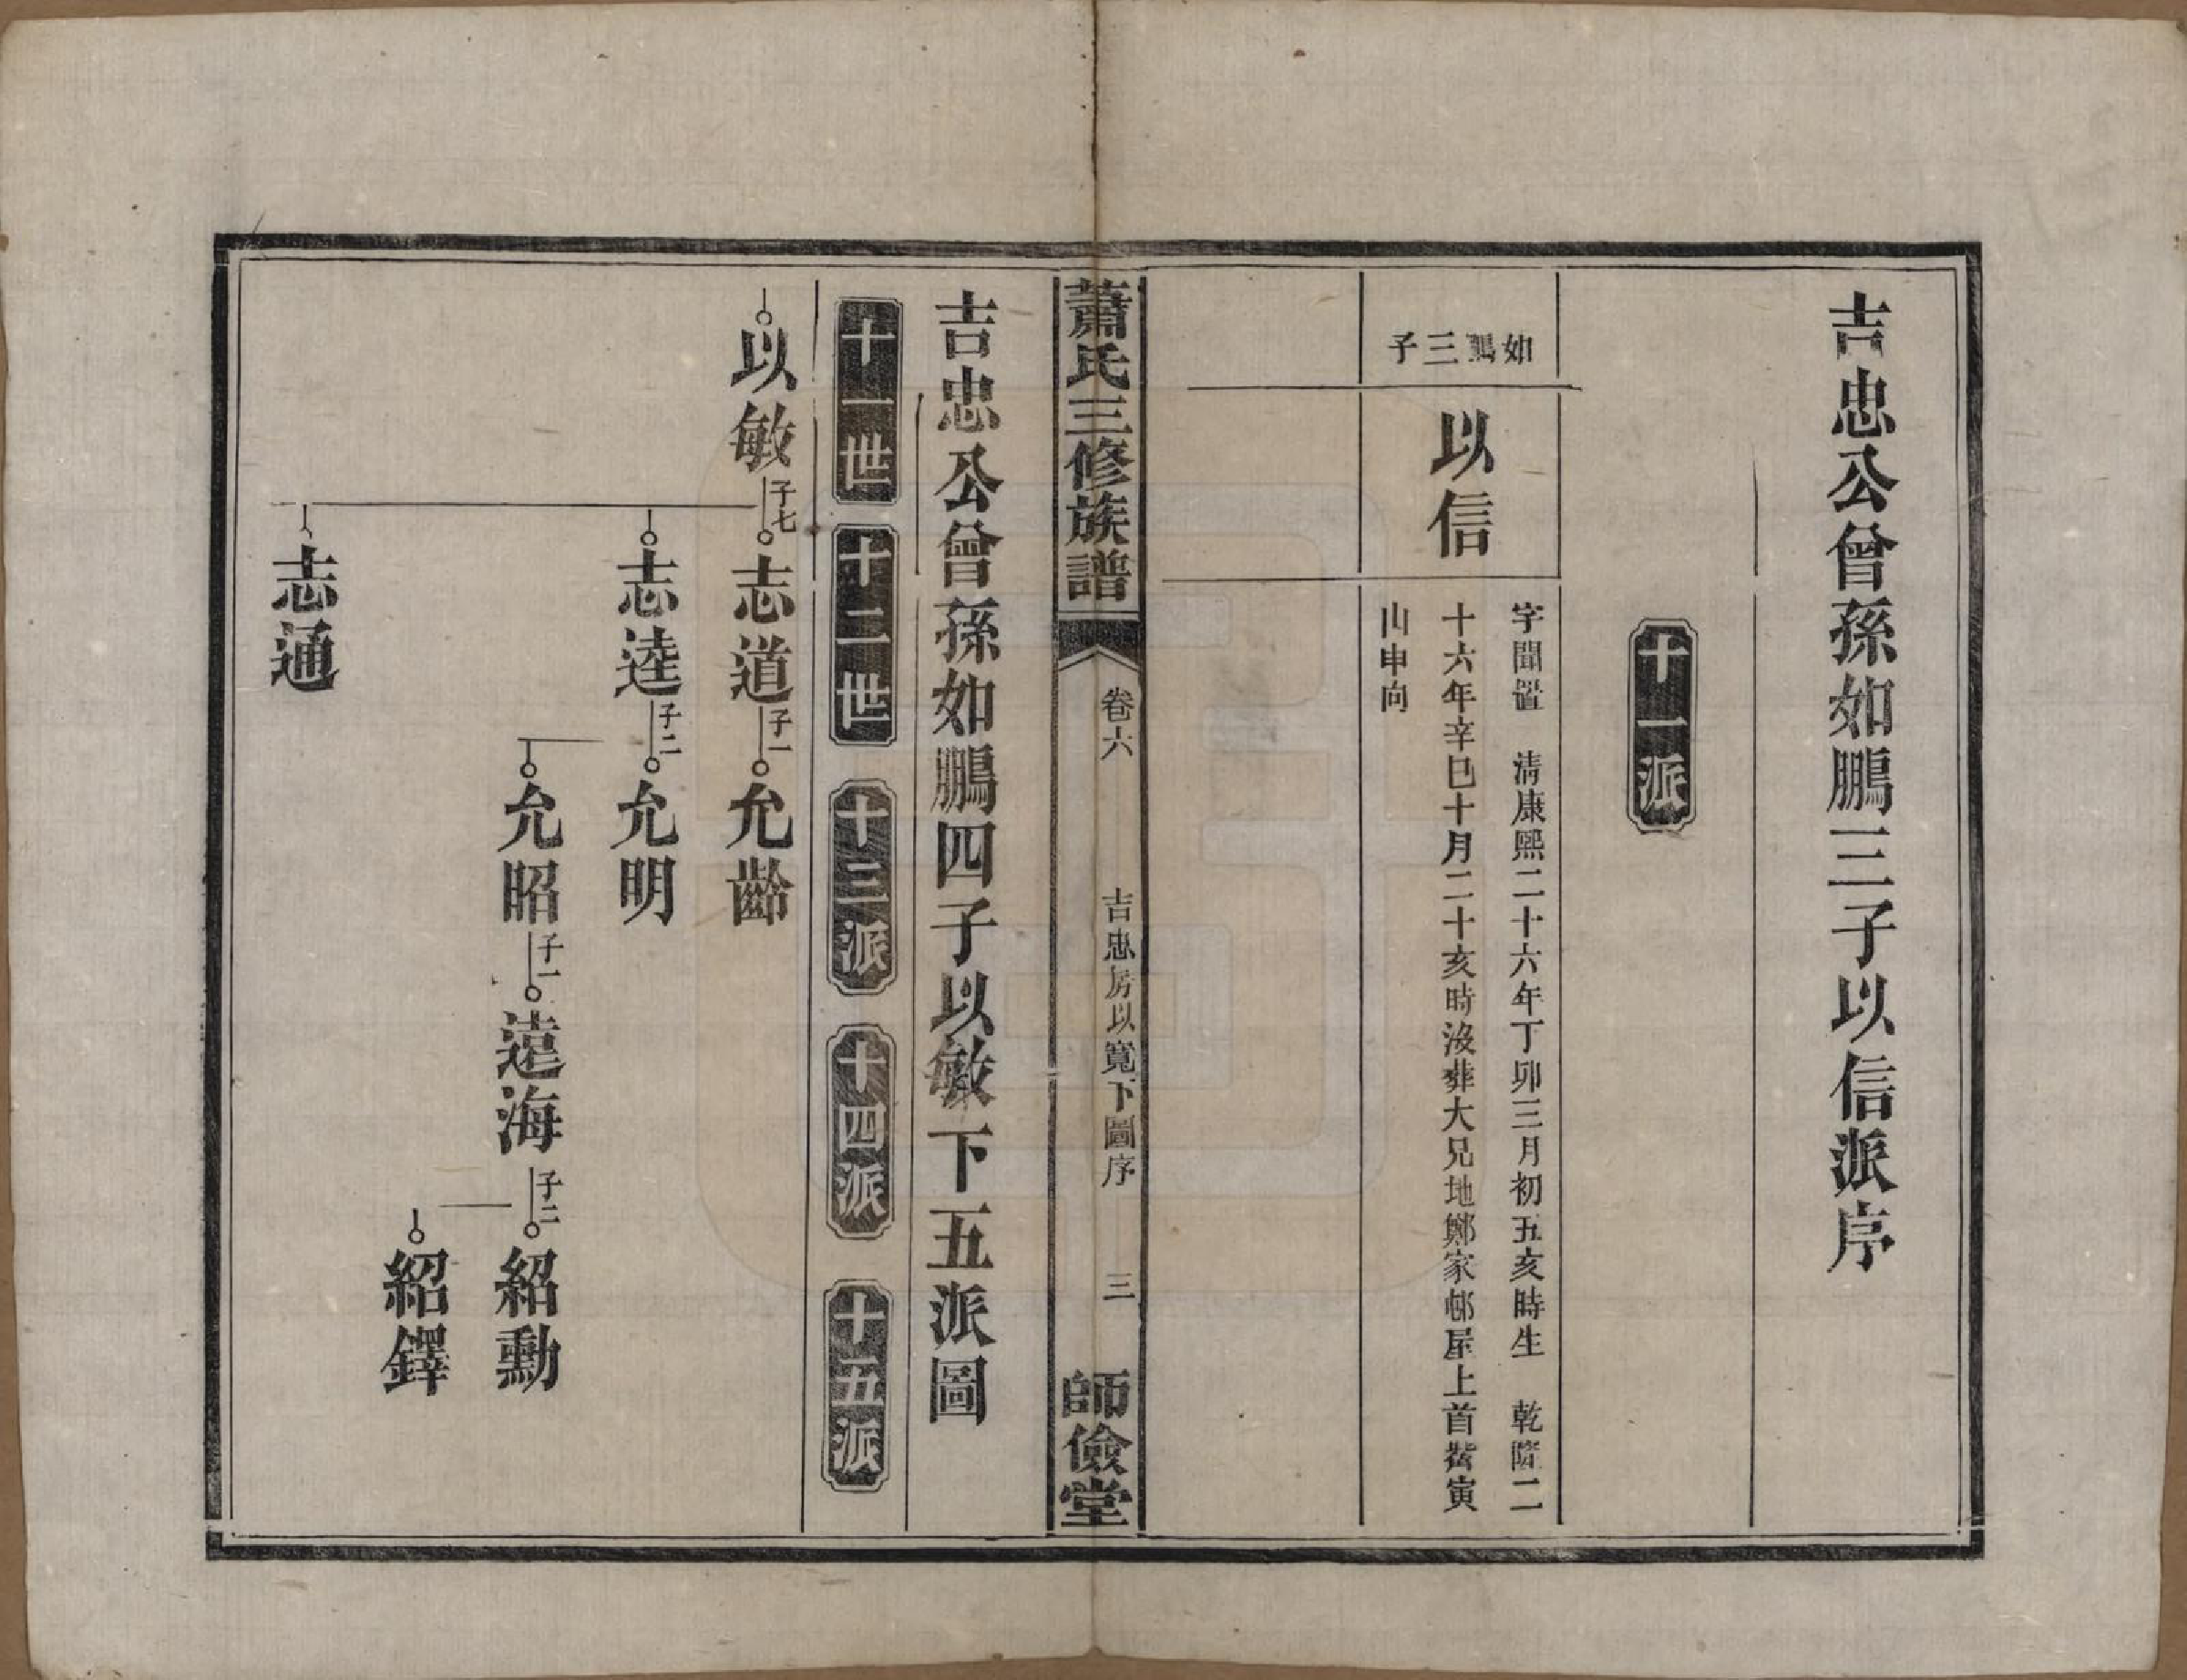 吉忠公曾孫如鵬三子以信派序
十一派
如鵬三子
以信
字聞聲　清康熙二十六年丁卯三月初五亥時生　乾隆二
十六年辛巳十月二十亥時沒葬大兄地鄭家邨屋上首嵜寅
山申向
蕭氏三修族譜
卷六
吉忠房以寬下圖序
三
師儉堂
吉忠公曾孫如鵬四子以敏下五派圖
十一世
十二世
十三派
十四派
十五派
以敏
子七
志道
子一
允齡
志逵
子二
允明
允昭
子一
遠海
子二
紹勳
紹鐸
志通